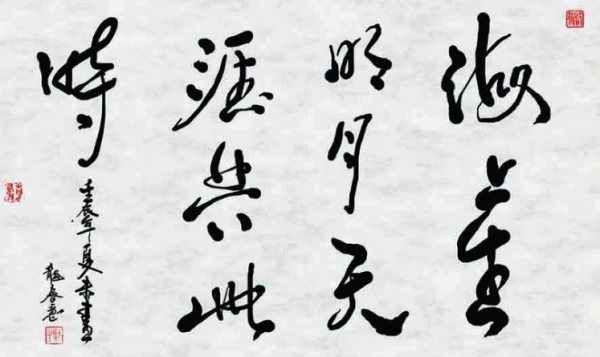 海上生
明月天
涯共此
時
年夏末書